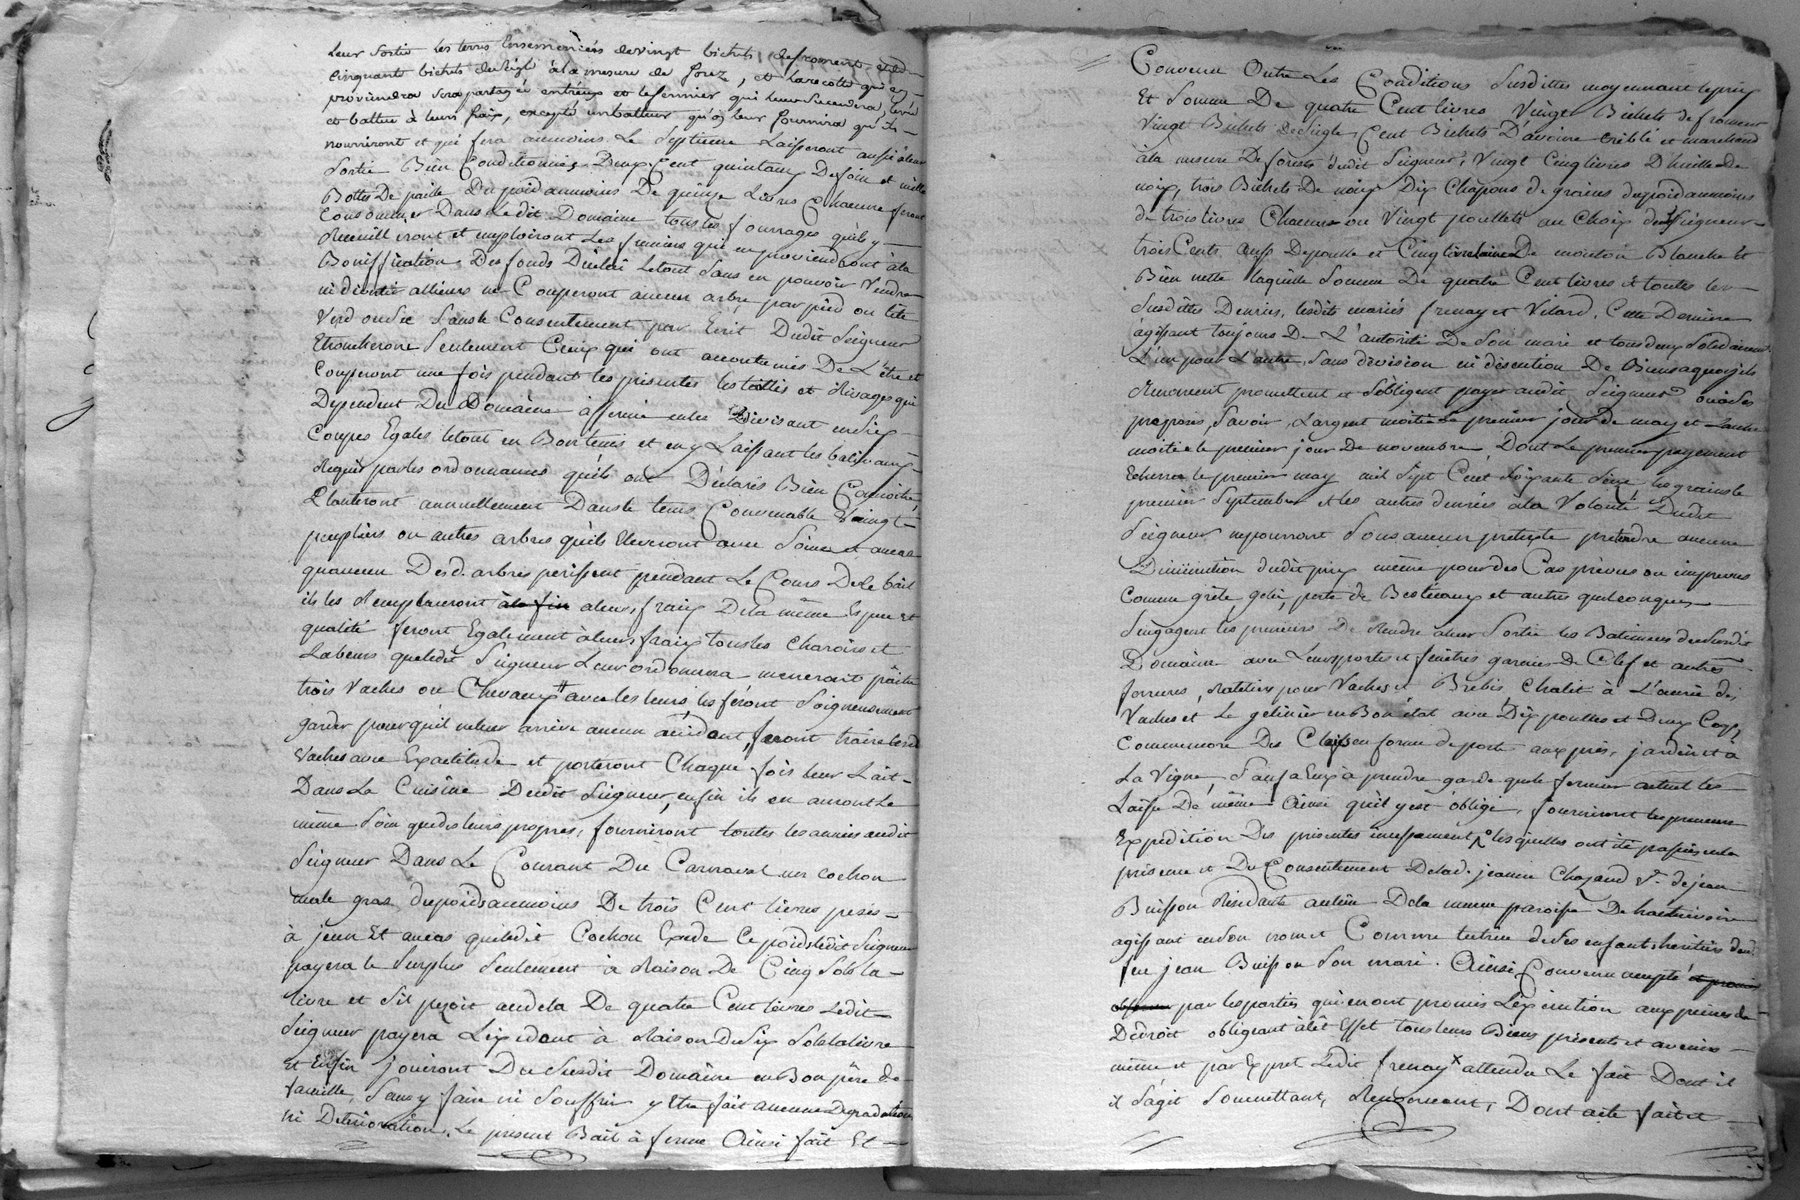 leur sortie les terres ensemencées de vingt bichets de froment et de
cinquante bichets de seigle à la mesure de forez, et la recolte qui en
proviendra sera partagée entr'eux et le fermier qui leur succedera levée
et battue à leurs fraix, excepté un batteur qu'on leur fournira qu'ils
nourriront et qui sera aumoins le septieme laisseront aussi à leur
sortie Bien Conditionnés Deux Cent quintaux De foin et mille
Bottes De paille Du poid aumoins De quinze Livres Chacune feront
Consommer Dans Ledit Domaine tous les fourrages qu'ils y
Recueilleront et emploiront Les fumiers qui en proviendront à la
Boniffication Des fonds D'iceluy le tout sans en pouvoir Vendre
ni divertir allieurs ne Couperont aucun arbre par pied ou tête
Verd ou sec sans le Consentement par Ecrit Dudit Seigneur
Etroncheront seulement Ceux qui ont accoutumés De L'être et
Couperont une fois pendant les presentes les taillis et Rivages qui
Dependent Du Domaine affermé en les Divisant en six
Coupes Egales le tout en Bon tems et en y Laissant les baliveaux
Requis par les ordonnances qu'ils ont Déclarés Bien Connoitre
Planteront annuellement Dans le tems Convenable Vingt
peupliers ou autres arbres qu'ils Eleveront avec soin et au cas
qu'aucun Desd. arbres perissent pendant Le Cours De le bail
ils les Remplaceront à la fin a leurs fraix De la même Espece et
qualité feront Egalement à leurs fraix tous les Charois et
Labeurs que ledit Seigneur Leur ordonnera meneront paître
trois Vaches ou Chevaux # avec les leurs, les féront soigneusement
garder pour qu'il ne leur arrive aucun accident, feront traire lesd.
Vaches avec Exactitude et porteront Chaque fois leur Lait
Dans La Cuisine Dudit Seigneur, enfin ils en auront Le
même soin que des leurs propres, fourniront toutes les années audit
Seigneur Dans Le Courant Du Carnaval un cochon
male gras du poids aumoins De trois Cent livres pesés
à jeun Et au cas que ledit Cochon Exede Ce poids ledit Seigneur
payera le surplus seulement à Raison De Cinq sols la
livre et s'il pezoit audela De quatre Cent livres ledit
Seigneur payera L'éxédant à Raison De six sols la livre
et Enfin jouiront Du susdit Domaine en Bon père de
famille, sans y faire ni souffrir y être fait aucune Degradation
ni Deterioration. Le present Bail à ferme Ainsi fait Et
Convenu Outre Les Conditions susdittes moyennant le prix
Et Somme De quatre Cent livres Vingt Bichets de froment
Vingt Bichets de seigle, Cent Bichets D'avoine criblé et marchand
à la mesure De forests dudit Seigneur, Vingt Cinq livres D'huille De
noix, trois Bichets De noix Dix Chapons de graines du poid aumoins
de trois livres Chacun ou Vingt poullets au Choix dudit Seigneur
trois Cents De paille et Cinq livres laine De mouton Blanche et
Bien nette laquelle Somme De quatre Cent livres et toutes les
susdittes Denrées, lesdits mariés frenay et Vilard, Cette Derniere
agissant toujours De L'autorité De son mari et tous deux solidairement
L'un pour L'autre, sans division ni discution De Biens a quoy ils
Renoncent promettent et s'obligent payer audit Seigneur ou à ses
preposés, savoir, L'argent moitié le premier jour De may et L'autre
moitié le premier jour De novembre, Dont Le premier payement
Echerra le premier may mil Sept Cent soixante Seize, les grains le
premier Septembre et les autres denrées a la Volonté Dudit
Seigneur ne pourront sous aucun pretexte pretendre aucune
Diminution dudit prix même pour des Cas prévus ou imprevus
Comme grêle gelée, perte de Bestieaux et autres quelconques
s'engagent les preneurs De Rendre a leur sortie les Batimens du susdit
Domaine avec Leurs portes et fenêtres garnies De Clef et autres
ferrures, Rateliers pour Vaches et Brebis Chalit à L'écurie des
Vaches et Le gelinier en Bon état avec Dix poulles et Deux Coqs,
Comme encore Des Clefs en forme de porte aux prés, jardin et a
La Vigne, sauf a Eux à prendre garde que le fermier actuel les
Laisse De même Ainsi qu'il y est obligé, fourniront les preneurs
Expedition Des presentes incessament, lesquelles ont été passées en la
presence et Du Consentement De lad. jeanne Chazaud Ve. de jean
Buisson Residante au lieu De la même paroisse De
agissant en son nom et Comme tutrice de ses enfants héritiers dud.
feu jean Buisson son mari. Ainsi Convenu accepté
par les parties qui en ont promis L'éxécution aux peines de
Dedroit obligeant à cet Effet tous leurs Biens présents et avenirs
même et par Exprès Ledit frenay x attendu Le fait Dont il
il s'agit Soumettant, Renonceant, Dont acte fait et